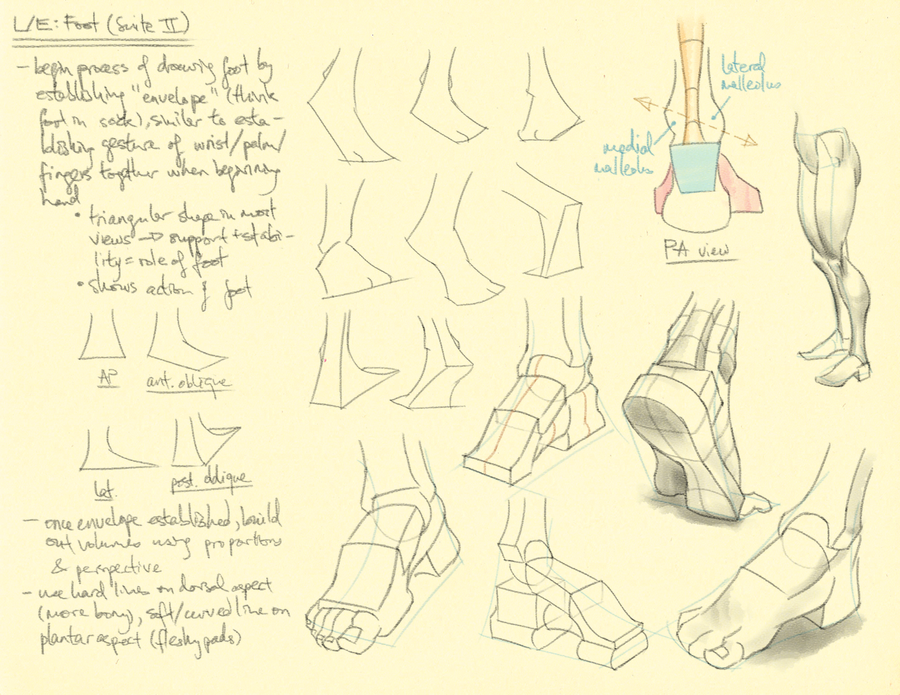 L/E: Foot (Suite II)
- begin process of drawing foot by
establishing "envelope" (think
foot in sock), similar to esta-
blishing gesture of wrist/palm/
fingers together when beginning
hand
• triangular shape in most
views → support + stabi-
lity = role of foot
• shows action of foot
AP
ant. oblique
lat.
post. oblique
- once envelope established, build
out volumes using proportions
& perspective
- use hard lines on dorsal aspect
(more bony), soft/curved line on
plantar aspect (fleshy pads)
lateral
malleolus
medial
malleolus
PA view